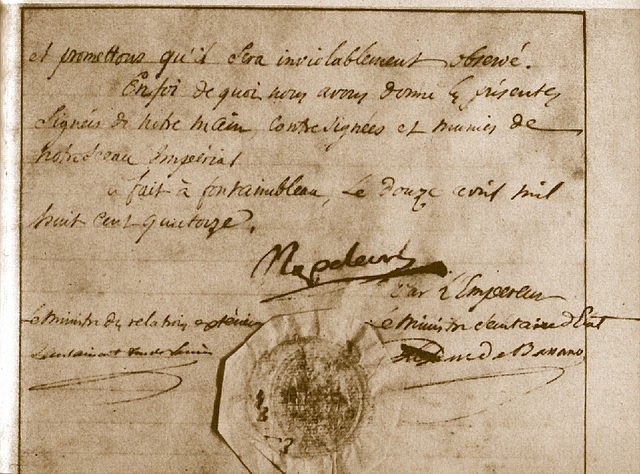 et promettons qu'il sera inviolablement observé.
En foi de quoi nous avons donné les présentes
signées de notre main, contresignées et munies de
notre sceau impérial
fait à fontainebleau, le douze avril mil
huit cent quatorze.
Napoleon
Par l'Empereur
le Ministre des relations extérieures
le Ministre secrétaire d'Etat
Le Duc de Bassano